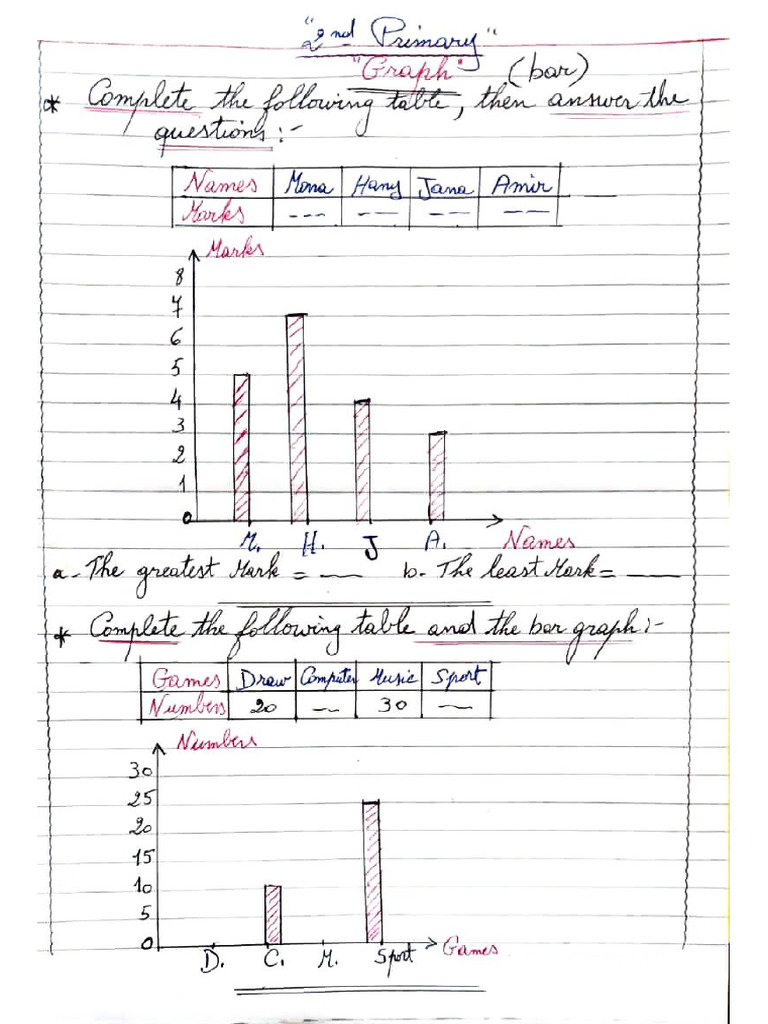 "2nd Primary"
"Graph" (bar)
* Complete the following table, then answer the
questions:-
Names Mona Hany Jana Amir
Marks --- --- --- ---
Marks
8
7
6
5
4
3
2
1
0
M. H. J A. Names
a- The greatest Mark = ___ b- The least Mark = ___
* Complete the following table and the bar graph:-
Games Draw Computer Music Sport
Numbers 20 --- 30 ---
Numbers
30
25
20
15
10
5
0
D. C. M. Sport Games